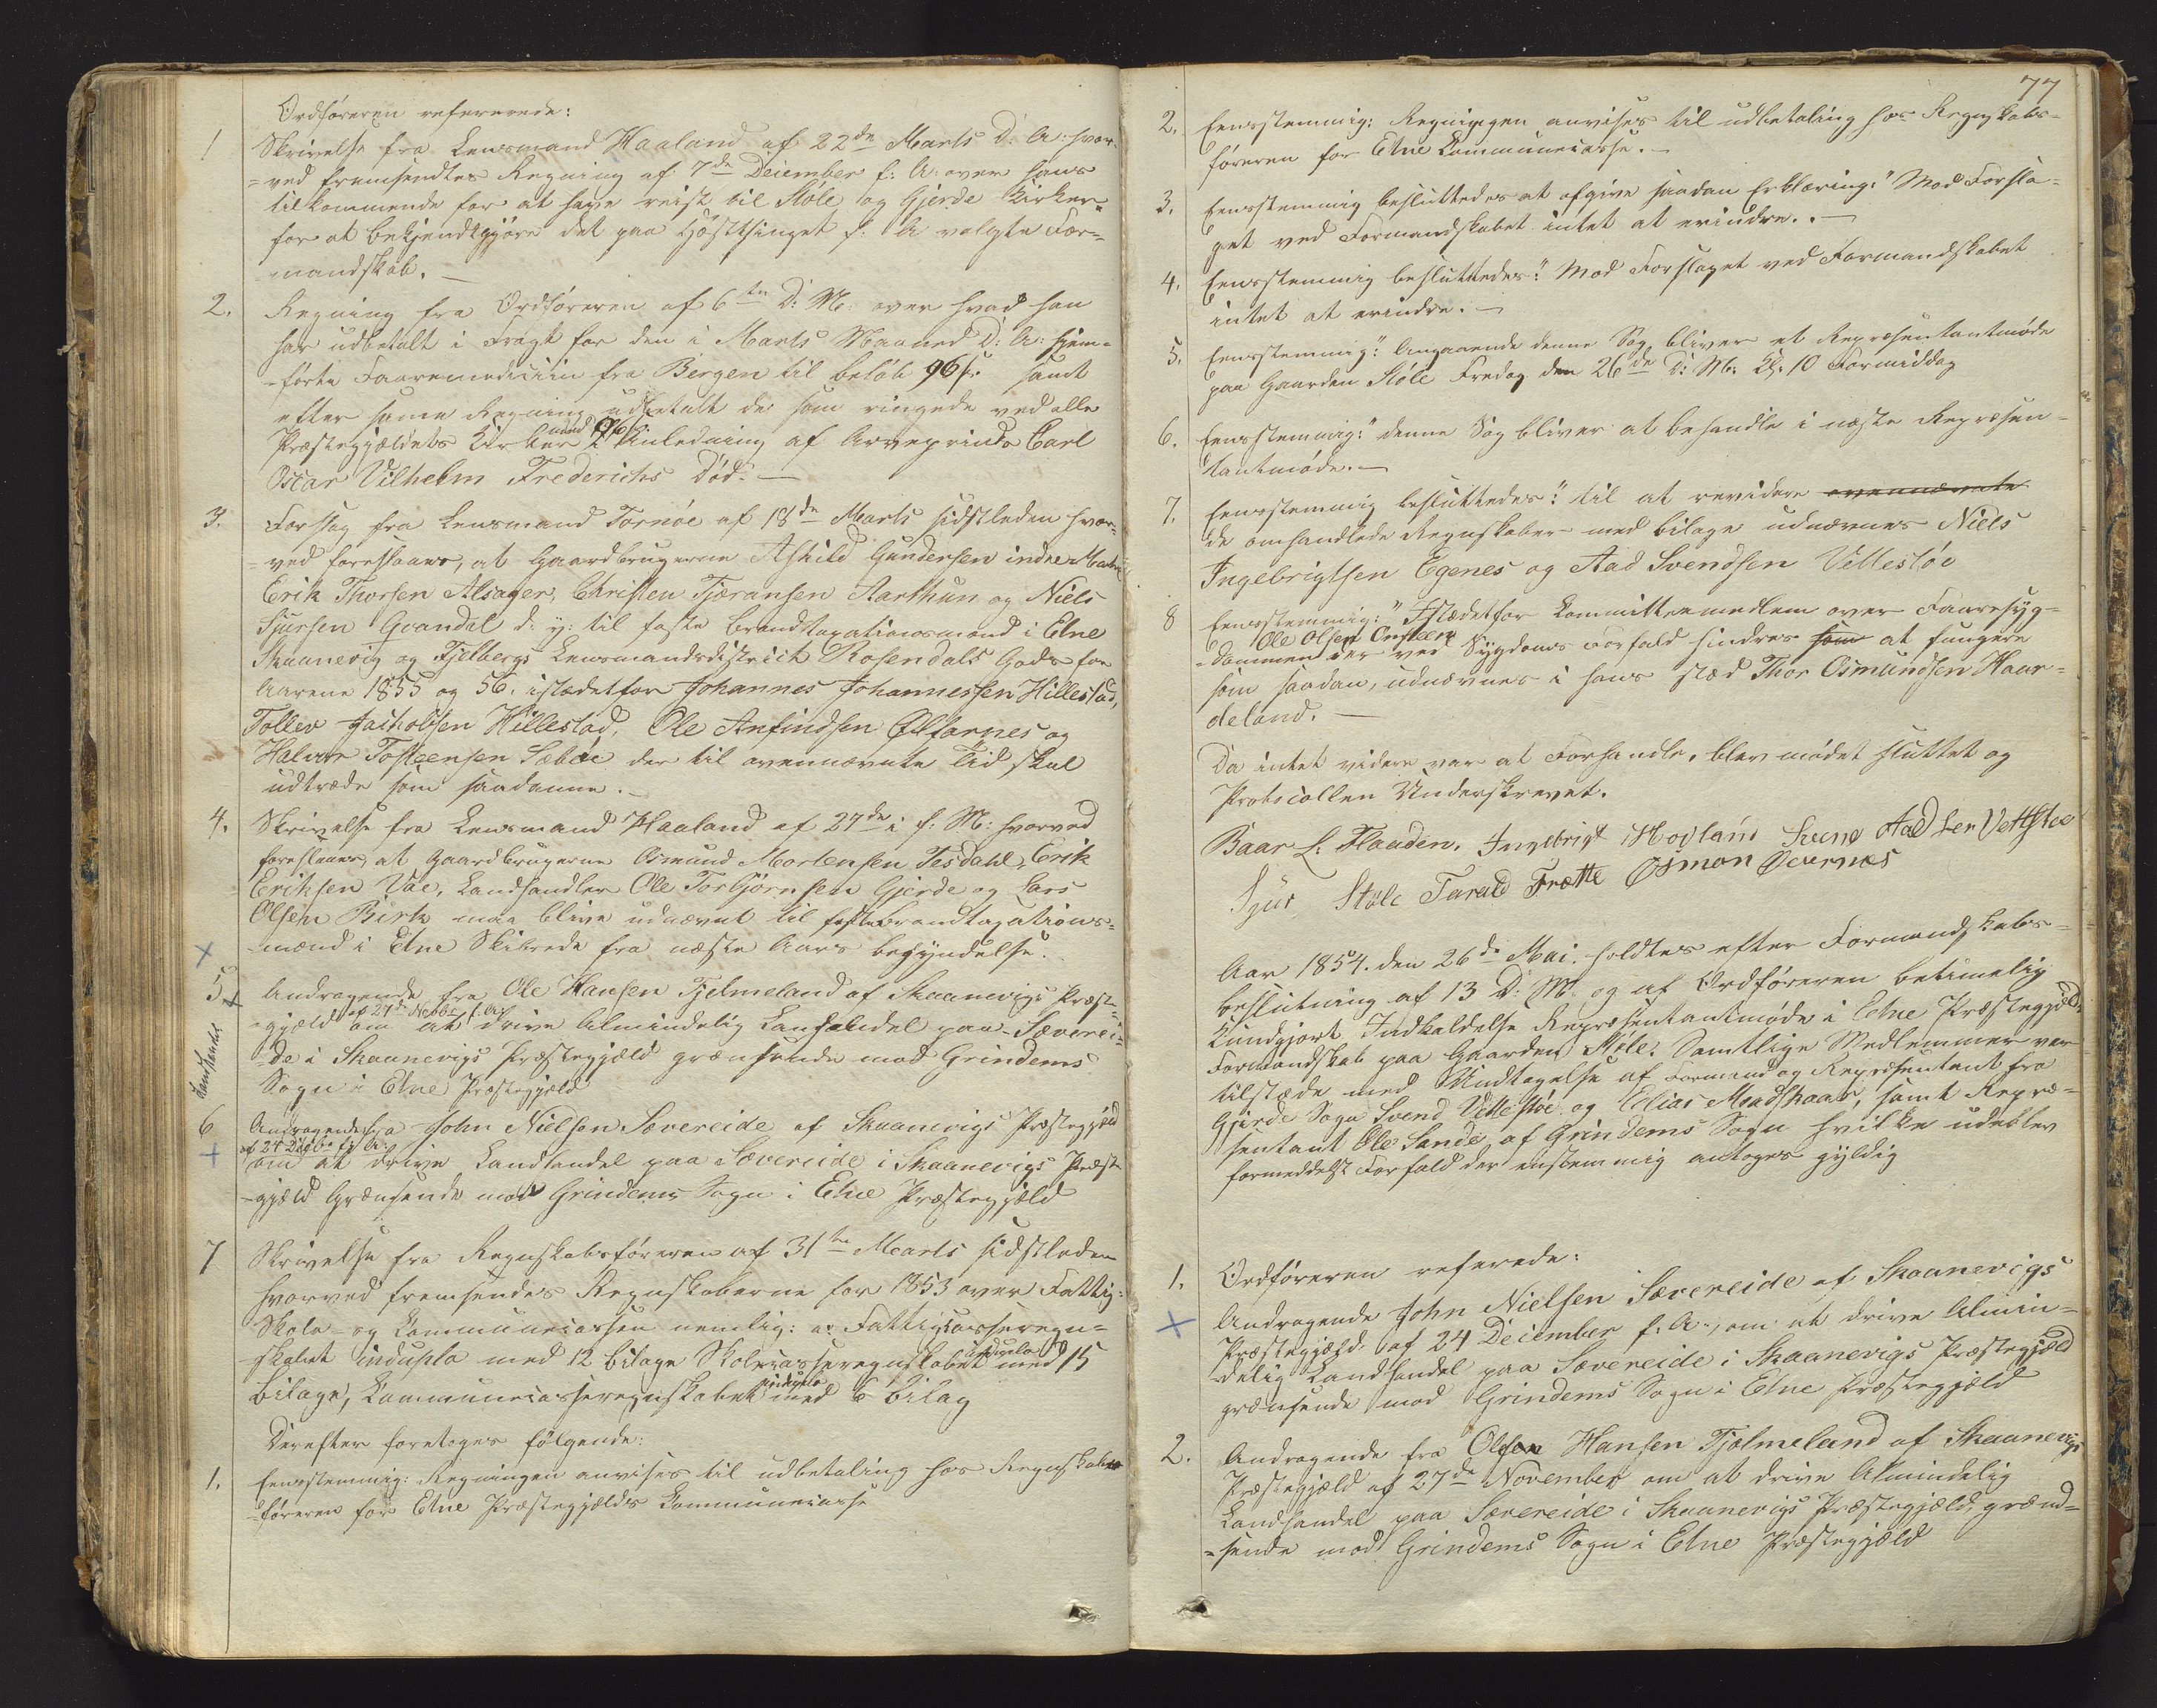 Ordføreren refererede:
1 Skrivelse fra Lensmand Haaland af 22de Marts d: A: hvor
=ved fremsendtes Regning af 7de December f: A: over hans
tilkommende for at have reist til Støle og Gjerde Kirker
for at bekjendtgjøre det paa Høstthinget f: A valgte For=
mandskab. —
2. Regning fra Ordføreren af 6te d: M: over hvad han
har udbetalt i Fragt for den i Marts Maaned d: A: hjem=
=førte Faaremedicin fra Bergen til beløb 96 s. samt
efter samme Regning udbetalt de som ringede ved alle
Præstegjældets Kirker i Anledning af Arveprinds Carl
Oscar Vilhelm Frederichs Død. —
3. Forslag fra Lensmand Tornøe af 18de Marts sidstleden hvor=
=ved foreslaaes, at Gaardbrugerne Askild Gundersen indre Matre
Erik Thorsen Alsager, Christen Tjæransen Aarthun og Niels
Sjursen Gvandal d: y: til faste Brandtaxationsmænd i Etne
Skaanevig og Fjelbergs Lensmandsdistrict Rosendals Gods for
Aarene 1855 og 56. istædetfor Johannes Johannessen Hillestad,
Tollev Jachobsen Hillestad, Ole Anfindsen Ølfarnes og
Halvor Tosteensen Sæbøe der til ovennævnte Tid skal
udtræde som saadanne. —
4. Skrivelse fra Lensmand Haaland af 27de i f: M: hvorved
foreslaaes, at Gaardbrugerne Osmund Mortensen Tesdahl, Erik
Eriksen Vae, Landhandler Ole Torbjørnsen Gjerde og Lars
Olsen Birk maa blive udnævnt til faste Brandtaxations=
=mænd i Etne Skibrede fra næste Aars Begyndelse.
5 Andragende fra Ole Hansen Tjelmeland af Skaanevigs Præst=
af 27de Novbr f: A:
=gjæld om at drive Almindelig Landhandel paa Sæverei=
=de i Skaanevigs Præstegjæld grænsende mod Grindems
Sogn i Etne Præstegjæld
Landhandel
6 Andragende fra John Nielsen Sævereide af Skaanevigs Præstegjæld
af 24 Decbr f: A:
om at drive Landhandel paa Sævereide i Skaanevigs Præste
=gjæld Grænsende mod Grindems Sogn i Etne Præstegjæld
7 Skrivelse fra Regnskabsføreren af 31te Marts sidstleden
hvorved fremsendes Regnskaberne for 1853 over Fattig=
Skole- og Communecassen nemlig: Fattigcasseregn=
skabet indupla med 12 bilage Skolecasseregnskabet indupla med 15
bilage, Communecasseregnskabet indupla med 6 bilag
Derefter foretoges følgende:
1. Eensstemmig: Regningen anvises til udbetaling hos Regnskabs=
=føreren for Etne Præstegjælds Communecasse
77
2. Eensstemmig: Regningen anvises til udbetaling hos Regnskabs=
føreren for Etne Communecasse. —
3. Eensstemmig besluttedes at afgive saadan Erklæring: "Mod Forsla=
get ved Formandskabet intet at erindre. . —
4. Eensstemmig besluttedes: "Mod Forslaget ved Formandskabet
intet at erindre. —
5. Eensstemmig: "Angaaende denne Sag bliver et Repræsentantmøde
paa Gaarden Støle Fredag den 26de d: M: Kl: 10 Formiddag
6. Eensstemmig: "denne Sag bliver at behandle i næste Repræsen=
tantmøde. —
7. Eensstemmig besluttedes: "til at revidere ovennævnte
de omhandlede Regnskaber med bilage udnævnes Niels
Ingebrigtsen Egenes og Aad Svendsen Vettestøe
8 Eensstemmig: "Istædetfor Committeemedlem over Faaresyg=
Ole Olsen Ensteen
=dommen der ved Sygdoms Forfald hindres som at fungere
som saadan, udnævnes i hans sted Thor Osmundsen Haar=
deland. —
Da intet videre var at Forhandle, blev mødet sluttet og
Protocollen Underskrevet.
Baar L: Flaaden, Ingebrigt Hovland Svend Aadsen Vettstøe
Sjur Støle Tarald Frette Osmon Øcernes
Aar 1854. den 26de Mai. holdtes efter Formandskabs=
beslutning af 13 d: M: og af Ordføreren betimelig
kundgjort Indkaldelse Repræsentantmøde i Etne Præstegjælds
Formandskab paa Gaarden Støle. Samtlige Medlemmer var
tilstæde med Undtagelse af Formand og Repræsentant fra
Gjerde Sogn Svend Vettestøe og Elias Mradshaar, samt Repræ=
sentant Ole Sande af Grindems Sogn hvilke udeblev
formeddelst Forfald der enstemmig antoges gyldig
Ordføreren referede:
1. Andragende John Nielsen Sævereide af Skaanevigs
Præstegjæld af 24 December f: A., om at drive Almin=
=delig Landhandel paa Sævereide i Skaanevigs Præstegjæld
grænsende mod Grindems Sogn i Etne Præstegjæld
2. Andragende fra Olsen Hansen Tjølmeland af Skaanevigs
Præstegjæld af 27de November om at drive Almindelig
Landhandel paa Sævereide i Skaanevigs Præstegjæld, grænd=
=sende mod Grindems Sogn i Etne Præstegjæld